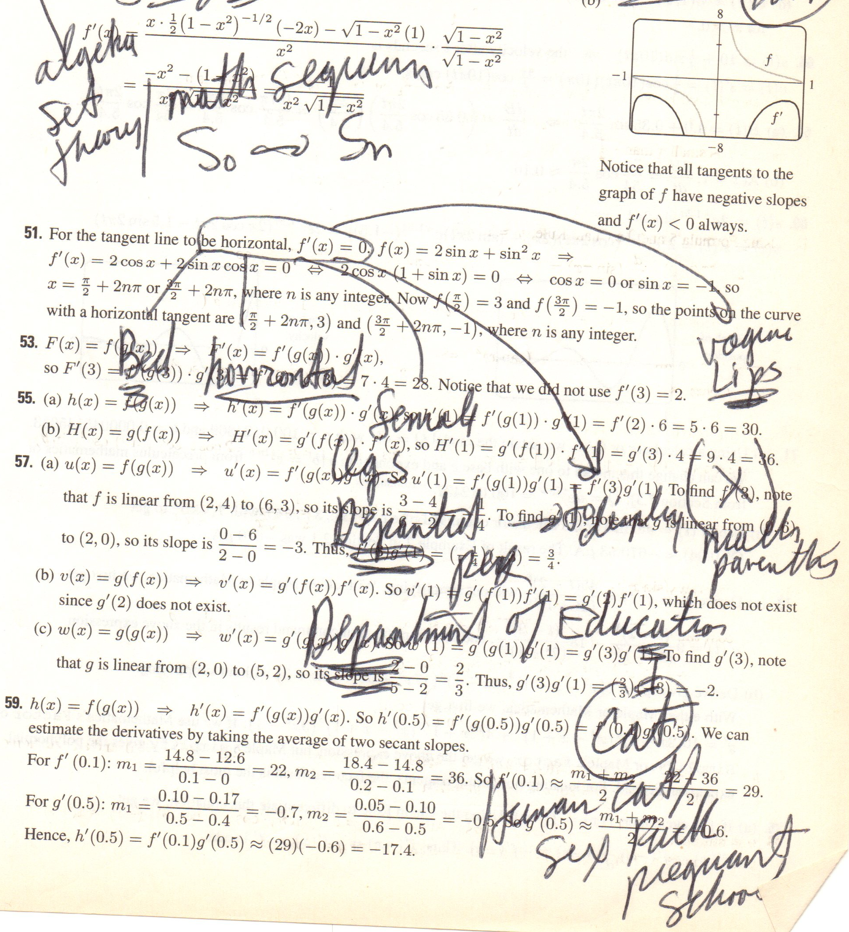 f'(x) = x · ½(1 − x²)^(−1/2) (−2x) − √(1 − x²) (1) / x² · √(1 − x²) / √(1 − x²)
algebra
set
theory
maths sequens
S₀ Sn
8
f
−1
1
f'
−8
Notice that all tangents to the
graph of f have negative slopes
and f'(x) < 0 always.
51. For the tangent line to be horizontal, f'(x) = 0. f(x) = 2 sin x + sin² x ⇒
f'(x) = 2 cos x + 2 sin x cos x = 0 ⇔ 2 cos x (1 + sin x) = 0 ⇔ cos x = 0 or sin x = −1, so
x = π/2 + 2nπ or 3π/2 + 2nπ, where n is any integer. Now f(π/2) = 3 and f(3π/2) = −1, so the points on the curve
with a horizontal tangent are (π/2 + 2nπ, 3) and (3π/2 + 2nπ, −1), where n is any integer.
Lips
Bed horizontal
53. F(x) = f(g(x)) ⇒ F'(x) = f'(g(x)) · g'(x),
so F'(3) = 7 · 4 = 28. Notice that we did not use f'(3) = 2.
55. (a) h(x) = f(g(x)) ⇒ h'(x) = f'(g(x)) · g'(x), so h'(1) = f'(g(1)) · g'(1) = f'(2) · 6 = 5 · 6 = 30.
(b) H(x) = g(f(x)) ⇒ H'(x) = g'(f(x)) · f'(x), so H'(1) = g'(f(1)) · f'(1) = g'(3) · 4 = 9 · 4 = 36.
legs
(X)
maths
57. (a) u(x) = f(g(x)) ⇒ u'(x) = f'(g(x)) So u'(1) = f'(g(1))g'(1) = f'(3)g'(1). To find f'(3), note
that f is linear from (2, 4) to (6, 3), so its slope is 3 − 4 To find g'(1), note that g is linear from (0, 6)
to (2, 0), so its slope is 0 − 6 / 2 − 0 = −3. Thus, = 3/4.
(b) v(x) = g(f(x)) ⇒ v'(x) = g'(f(x))f'(x). So v'(1) = g'(f(1))f'(1) = g'(2)f'(1), which does not exist
since g'(2) does not exist.
Department of Education
(c) w(x) = g(g(x)) ⇒ w'(x) = g'(g(x)) (1) = g'(g(1))g'(1) = g'(3)g'(1). To find g'(3), note
that g is linear from (2, 0) to (5, 2), so its slope is 2 − 0 / 5 − 2 = 2/3. Thus, g'(3)g'(1) = (2/3)(−3) = −2.
cat
59. h(x) = f(g(x)) ⇒ h'(x) = f'(g(x))g'(x). So h'(0.5) = f'(g(0.5))g'(0.5) = f'(0.1)g'(0.5). We can
estimate the derivatives by taking the average of two secant slopes.
For f'(0.1): m₁ = 14.8 − 12.6 / 0.1 − 0 = 22, m₂ = 18.4 − 14.8 / 0.2 − 0.1 = 36. So f'(0.1) ≈ m₁ + m₂ / 2 = 22 + 36 / 2 = 29.
For g'(0.5): m₁ = 0.10 − 0.17 / 0.5 − 0.4 = −0.7, m₂ = 0.05 − 0.10 / 0.6 − 0.5 = −0.5. So g'(0.5) ≈ m₁ + m₂ / 2 = −0.6.
Hence, h'(0.5) = f'(0.1)g'(0.5) ≈ (29)(−0.6) = −17.4.
cat
sex
pregnant
school